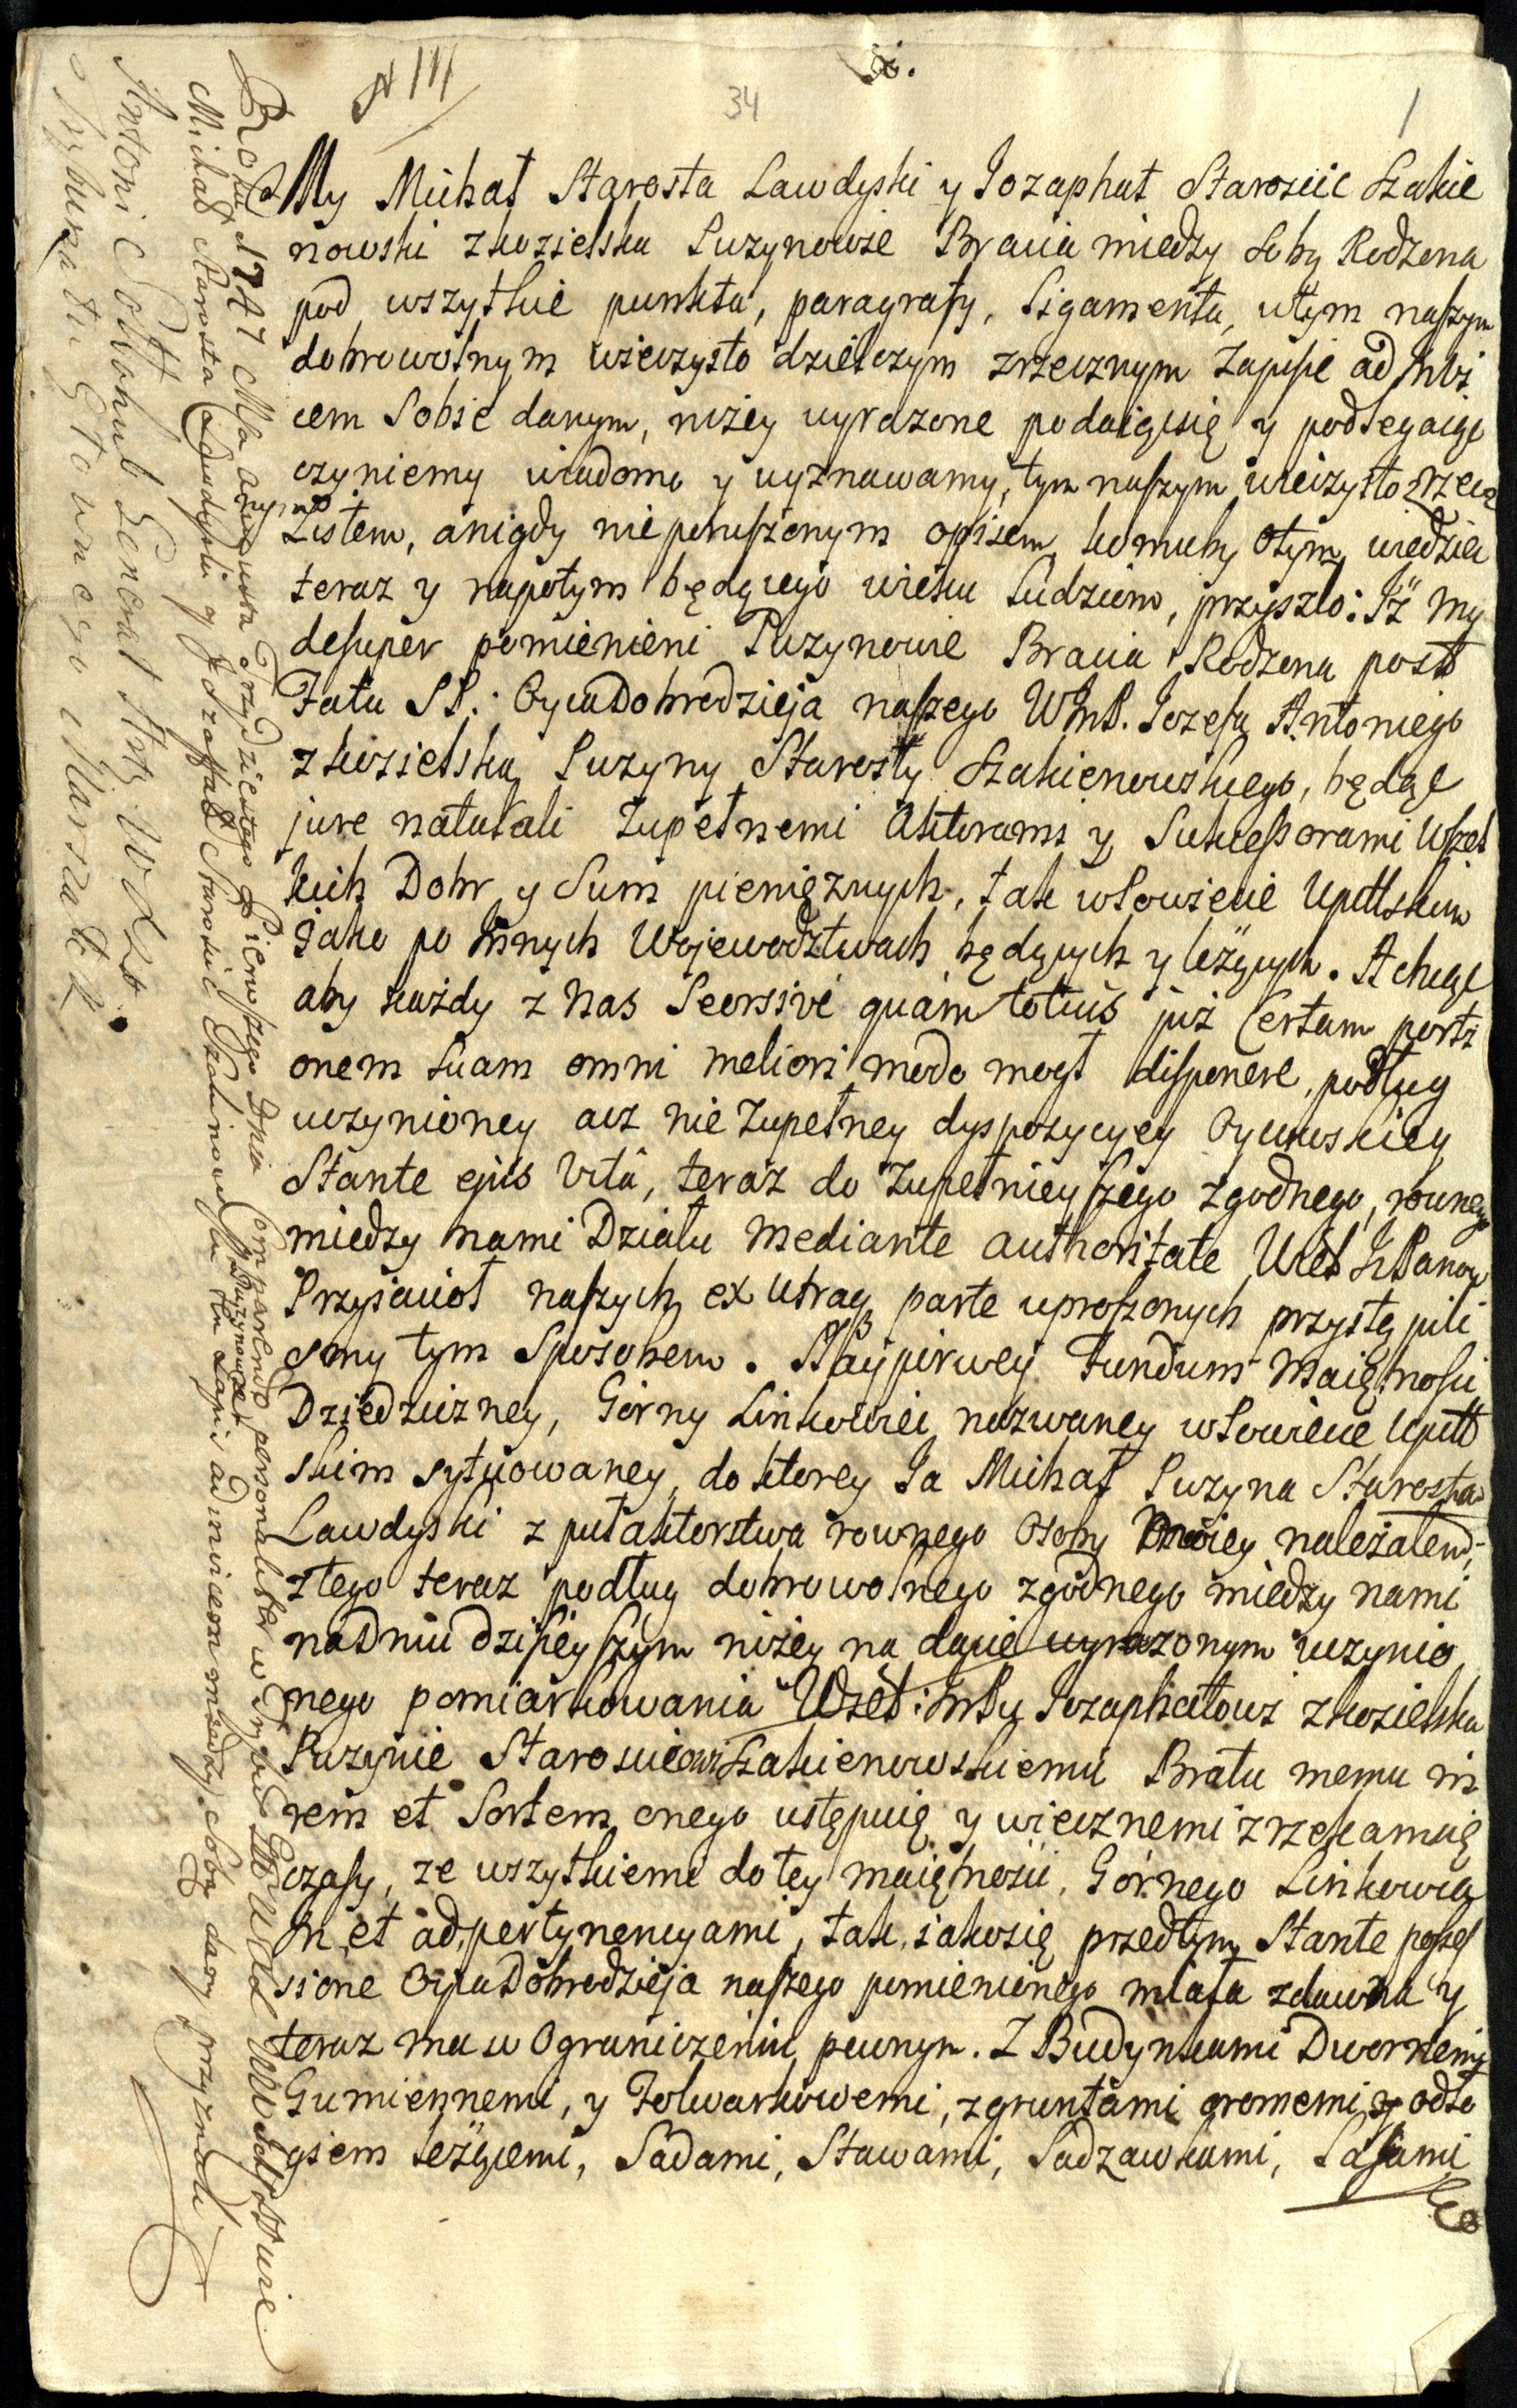 N 111
34
1
My Michał Starosta Lawdyski y Jozaphat Starościc Szakie
nowski z Kozielska Puzynowie Bracia między sobą Rodzona
pod wszytkie punkta, paragrafy, ligamenta, wtym naszym
dobrowolnym wieczysto dzielczym zrzecznym Zapisie ad invi
cem Sobie danym, niżey wyrażone podaiąc się y podlegaiąc
czyniemy wiadomo y wyznawamy, tym naszym wieczysto zrzecz
nym Listem, a nigdy nieporuszonym opisem, komuby otym wiedzieć
teraz y napotym będącego wieku Ludziom, przyszło: Iż my
desuper pomienieni Puzynowie Bracia Rodzona post
Fata SP: Oyca Dobrodzieja naszego WJmP. Jozefa Antoniego
z Kozielska Puzyny Starosty Szakienowskiego, będąc
jure naturali Zupełnemi Aktorami y Sukcessorami wszel
kich Dobr y Sum pieniężnych, tak w Powiecie Upittskim
jako po innych Wojewodztwach będących y leżących. A chcąc
aby każdy z nas Seorsive quam totius już Certam porti
onem suam omni meliori modo mogł disponere, podług
uczynioney acz nie Zupełney dyspozycyey Oycowskiey
Stante ejus vitâ, teraz do Zupełnieyszego zgodnego, rownego
między nami Działu mediante authoritate Wiel: IchPanow
Przyjacioł naszych ex utraq parte uproszonych przystąpili
smy tym Sposobem. Naypierwey Fundum Maiętnosci
Dziedziczney, Górny Linkowiec nazwaney w Powiecie Upitt
skim sytuowaney, do ktorey Ja Michał Puzyna Starosta
Lawdyski z pułaktorstwa rownego Osoby moiey należałem,
z tego teraz podług dobrowolnego zgodnego między nami
na Dniu dzisieyszym niżey na dacie wyrażonym uczynio
nego pomiarkowania Wiel: JmPu Jozaphatowi z Kozielska
Puzynie Starościcowi Szakienowskiemu Bratu memu in
rem et Sortem onego ustępuię y wiecznemi zrzekam się
czasy, ze wszytkiemi do tey maiętnosci, Górnego Linkowca
in et ad pertynencyami, tak jako się przedtym Stante posses
sione Oyca Dobrodzieja naszego pomienionego miała zdawna y
teraz ma w Ograniczeniu pewnym. Z Budynkami Dwornemi
Gumiennemi, y Folwarkowemi, z gruntami oromemi y odło
giem leżącemi, Sadami, Stawami, Sadzawkami, Lasami
Roku 1747 Mca Augusta Trzydziestego Pierwszego Dnia Comparendo personaliter w Urzędu
Michał Starosta Lawdyski y Jozaffat Starościc Szakinowski Puzynowie ten Zapis ad invicem między sobą dany przyznali
Antoni Sołłohub Generał Arty: W X Lit:
Trybunału Głownego Marszałek